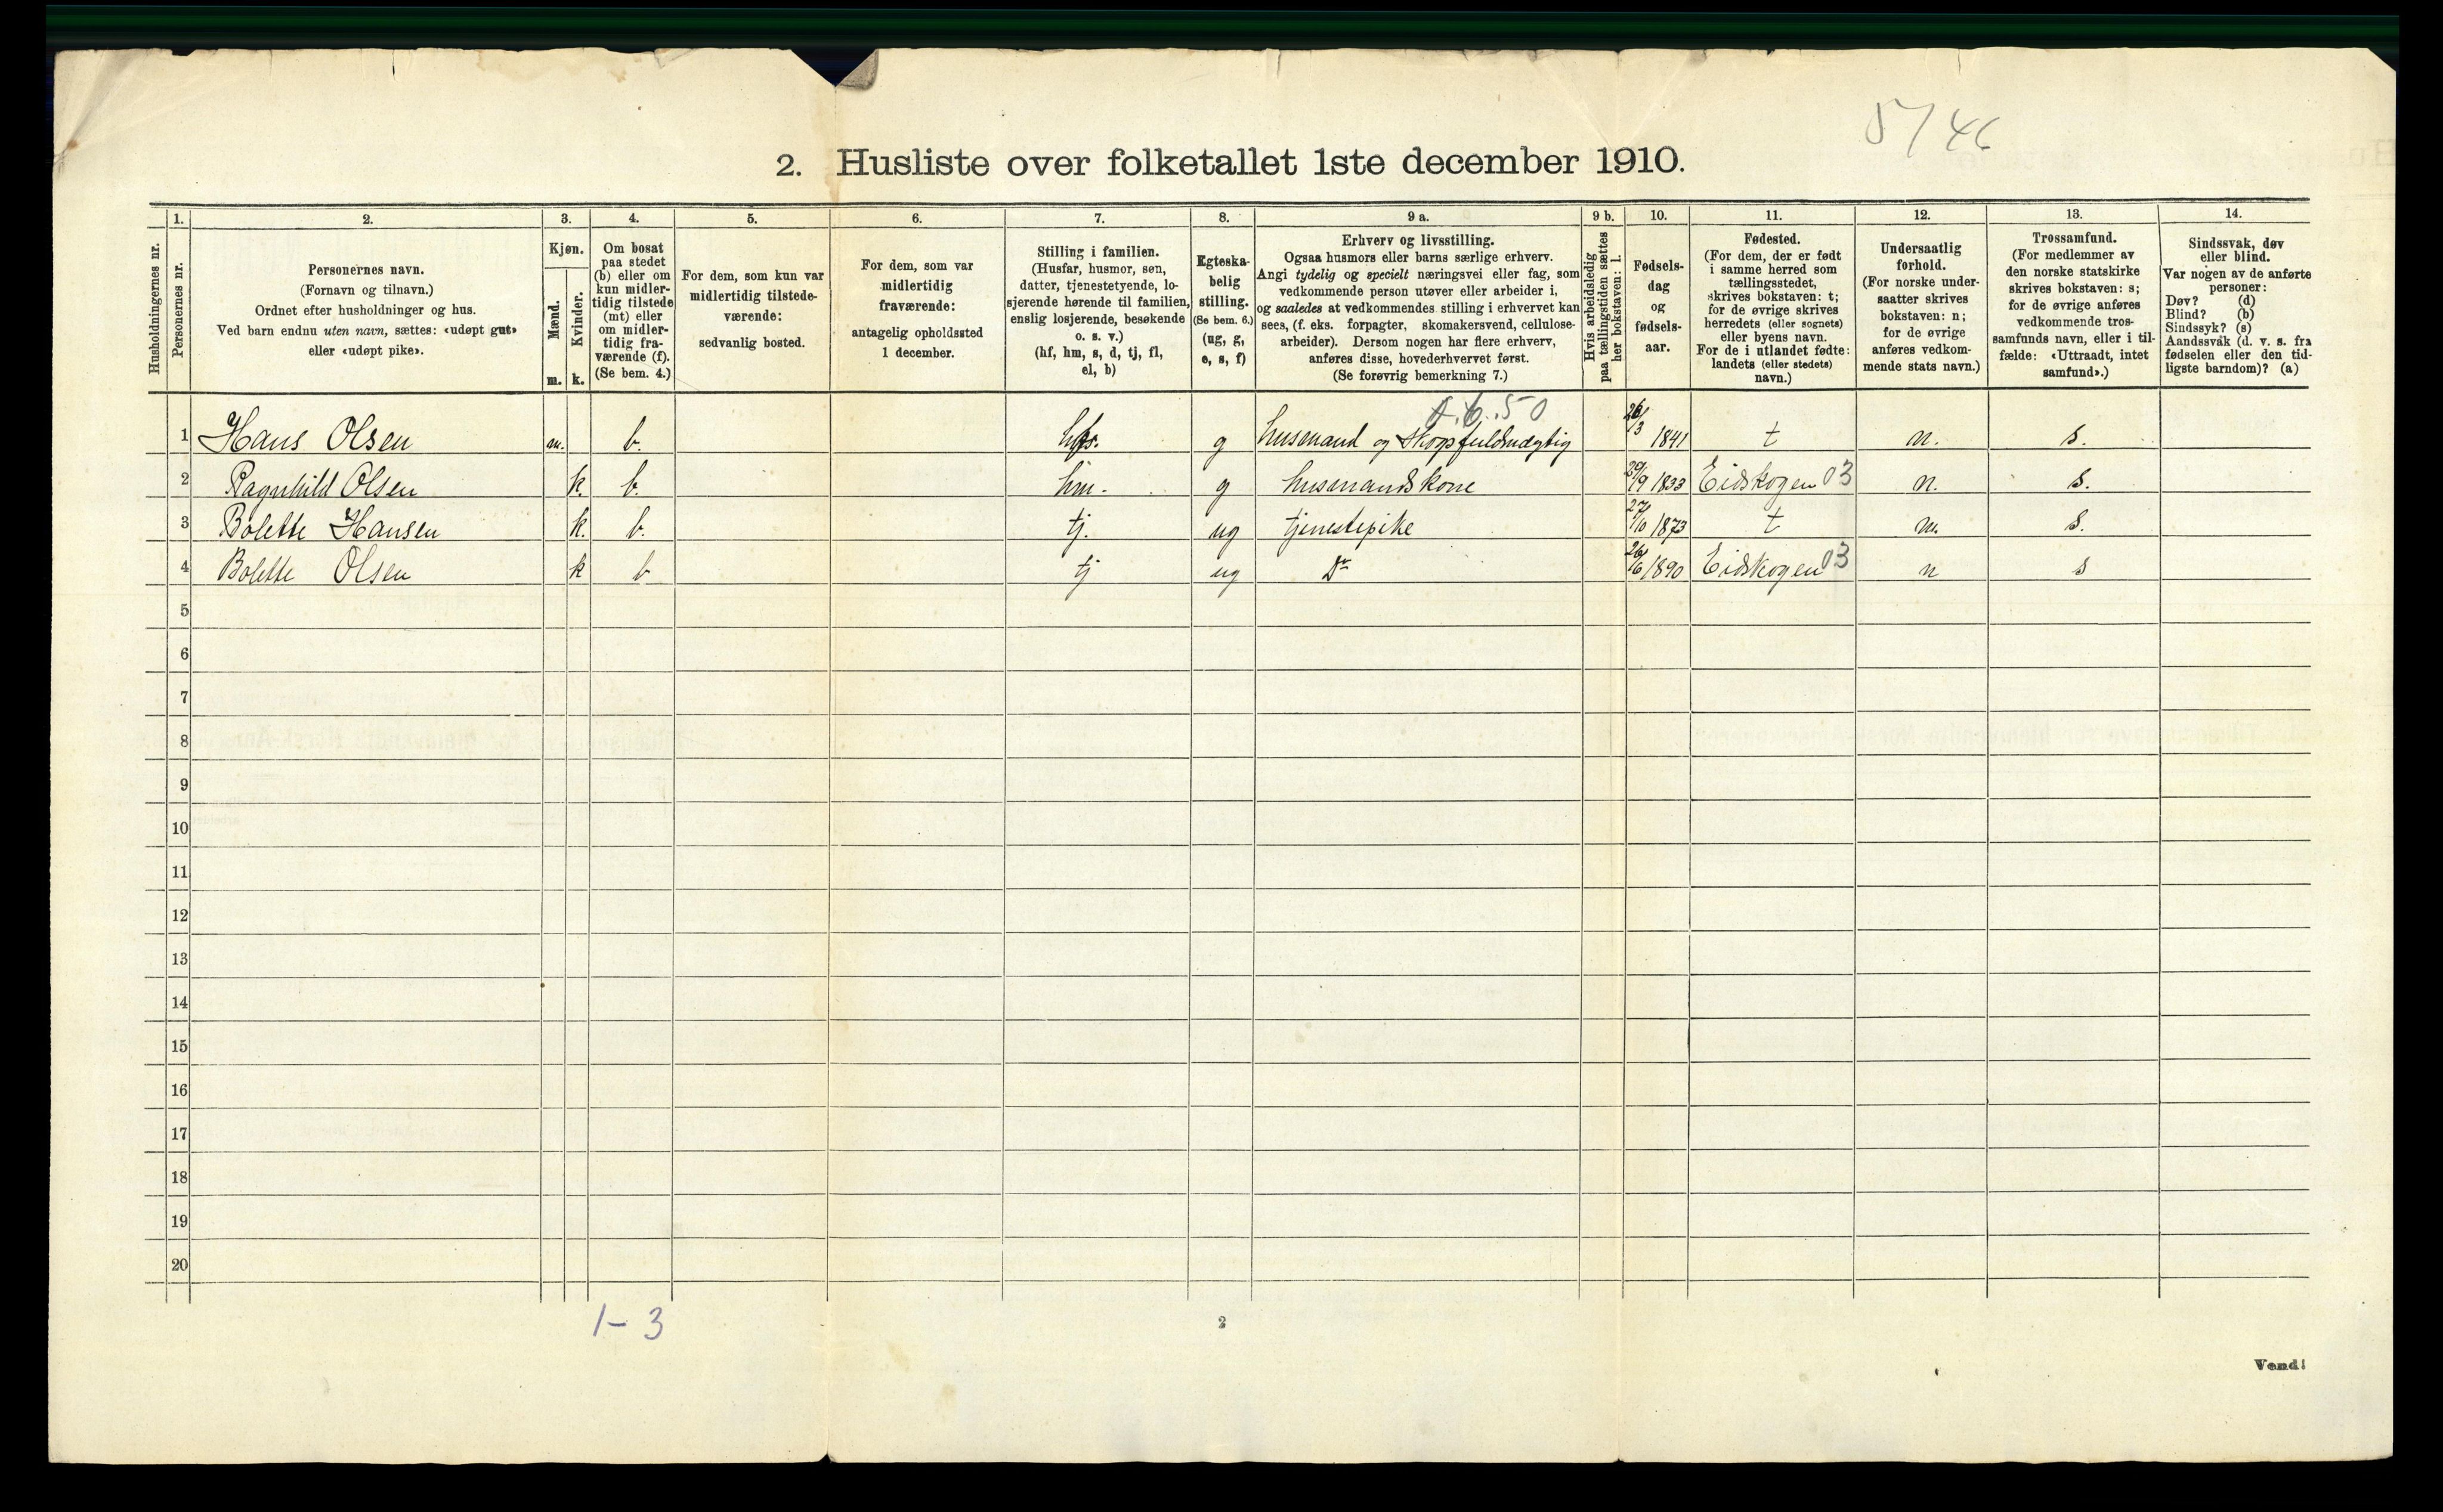 5/46
2. Husliste over folketallet 1ste december 1910.
Husholdningernes nr.
1.
Personernes nr.
2.
Personernes navn.
(Fornavn og tilnavn.)
Ordnet efter husholdninger og hus.
Ved barn endnu uten navn, sættes: «udøpt gut»
eller «udøpt pike».
3.
Kjøn.
Mænd.
Kvinder.
m. k.
4.
Om bosat
paa stedet
(b) eller om
kun midler-
tidig tilstede
(mt) eller
om midler-
tidig fra-
værende (f).
(Se bem. 4.)
5.
For dem, som kun var
midlertidig tilstede-
værende:
sedvanlig bosted.
6.
For dem, som var
midlertidig
fraværende:
antagelig opholdssted
1 december.
7.
Stilling i familien.
(Husfar, husmor, søn,
datter, tjenestetyende, lo-
sjerende hørende til familien,
enslig losjerende, besøkende
o. s. v.)
(hf, hm, s, d, tj, fl,
el, b)
8.
Egteska-
belig
stilling.
(Se bem. 6.)
(ug, g,
e, s, f)
9 a.
Erhverv og livsstilling.
Ogsaa husmors eller barns særlige erhverv.
Angi tydelig og specielt næringsvei eller fag, som
vedkommende person utøver eller arbeider i,
og saaledes at vedkommendes stilling i erhvervet kan
sees, (f. eks. forpagter, skomakersvend, cellulose-
arbeider). Dersom nogen har flere erhverv,
anføres disse, hovederhvervet først.
(Se forøvrig bemerkning 7.)
9 b.
Hvis arbeidsledig
paa tællingstiden sættes
her bokstaven: l.
10.
Fødsels-
dag
og
fødsels-
aar.
11.
Fødested.
(For dem, der er født
i samme herred som
tællingsstedet,
skrives bokstaven: t;
for de øvrige skrives
herredets (eller sognets)
eller byens navn.
For de i utlandet fødte:
landets (eller stedets)
navn.)
12.
Undersaatlig
forhold.
(For norske under-
saatter skrives
bokstaven: n;
for de øvrige
anføres vedkom-
mende stats navn.)
13.
Trossamfund.
(For medlemmer av
den norske statskirke
skrives bokstaven: s;
for de øvrige anføres
vedkommende tros-
samfunds navn, eller i til-
fælde: «Uttraadt, intet
samfund».)
14.
Sindssvak, døv
eller blind.
Var nogen av de anførte
personer:
Døv? (d)
Blind? (b)
Sindssyk? (s)
Aandssvak (d. v. s. fra
fødselen eller den tid-
ligste barndom)? (a)
1 Hans Olsen m. b. g husmand og skogsfuldmægtig 26/3 1841 t n. s.
2 Ragnhild Olsen k. b. hm. g husmandskone 29/9 1833 Eidskogen 03 n. s.
3 Bolette Hansen k. b. tj. ug tjenestepike 27/10 1873 t n. s.
4 Bolette Olsen k b tj ug Do 26/6 1890 Eidskogen 03 n s
5
6
7
8
9
10
11
12
13
14
15
16
17
18
19
20
1-3
2
Vend!